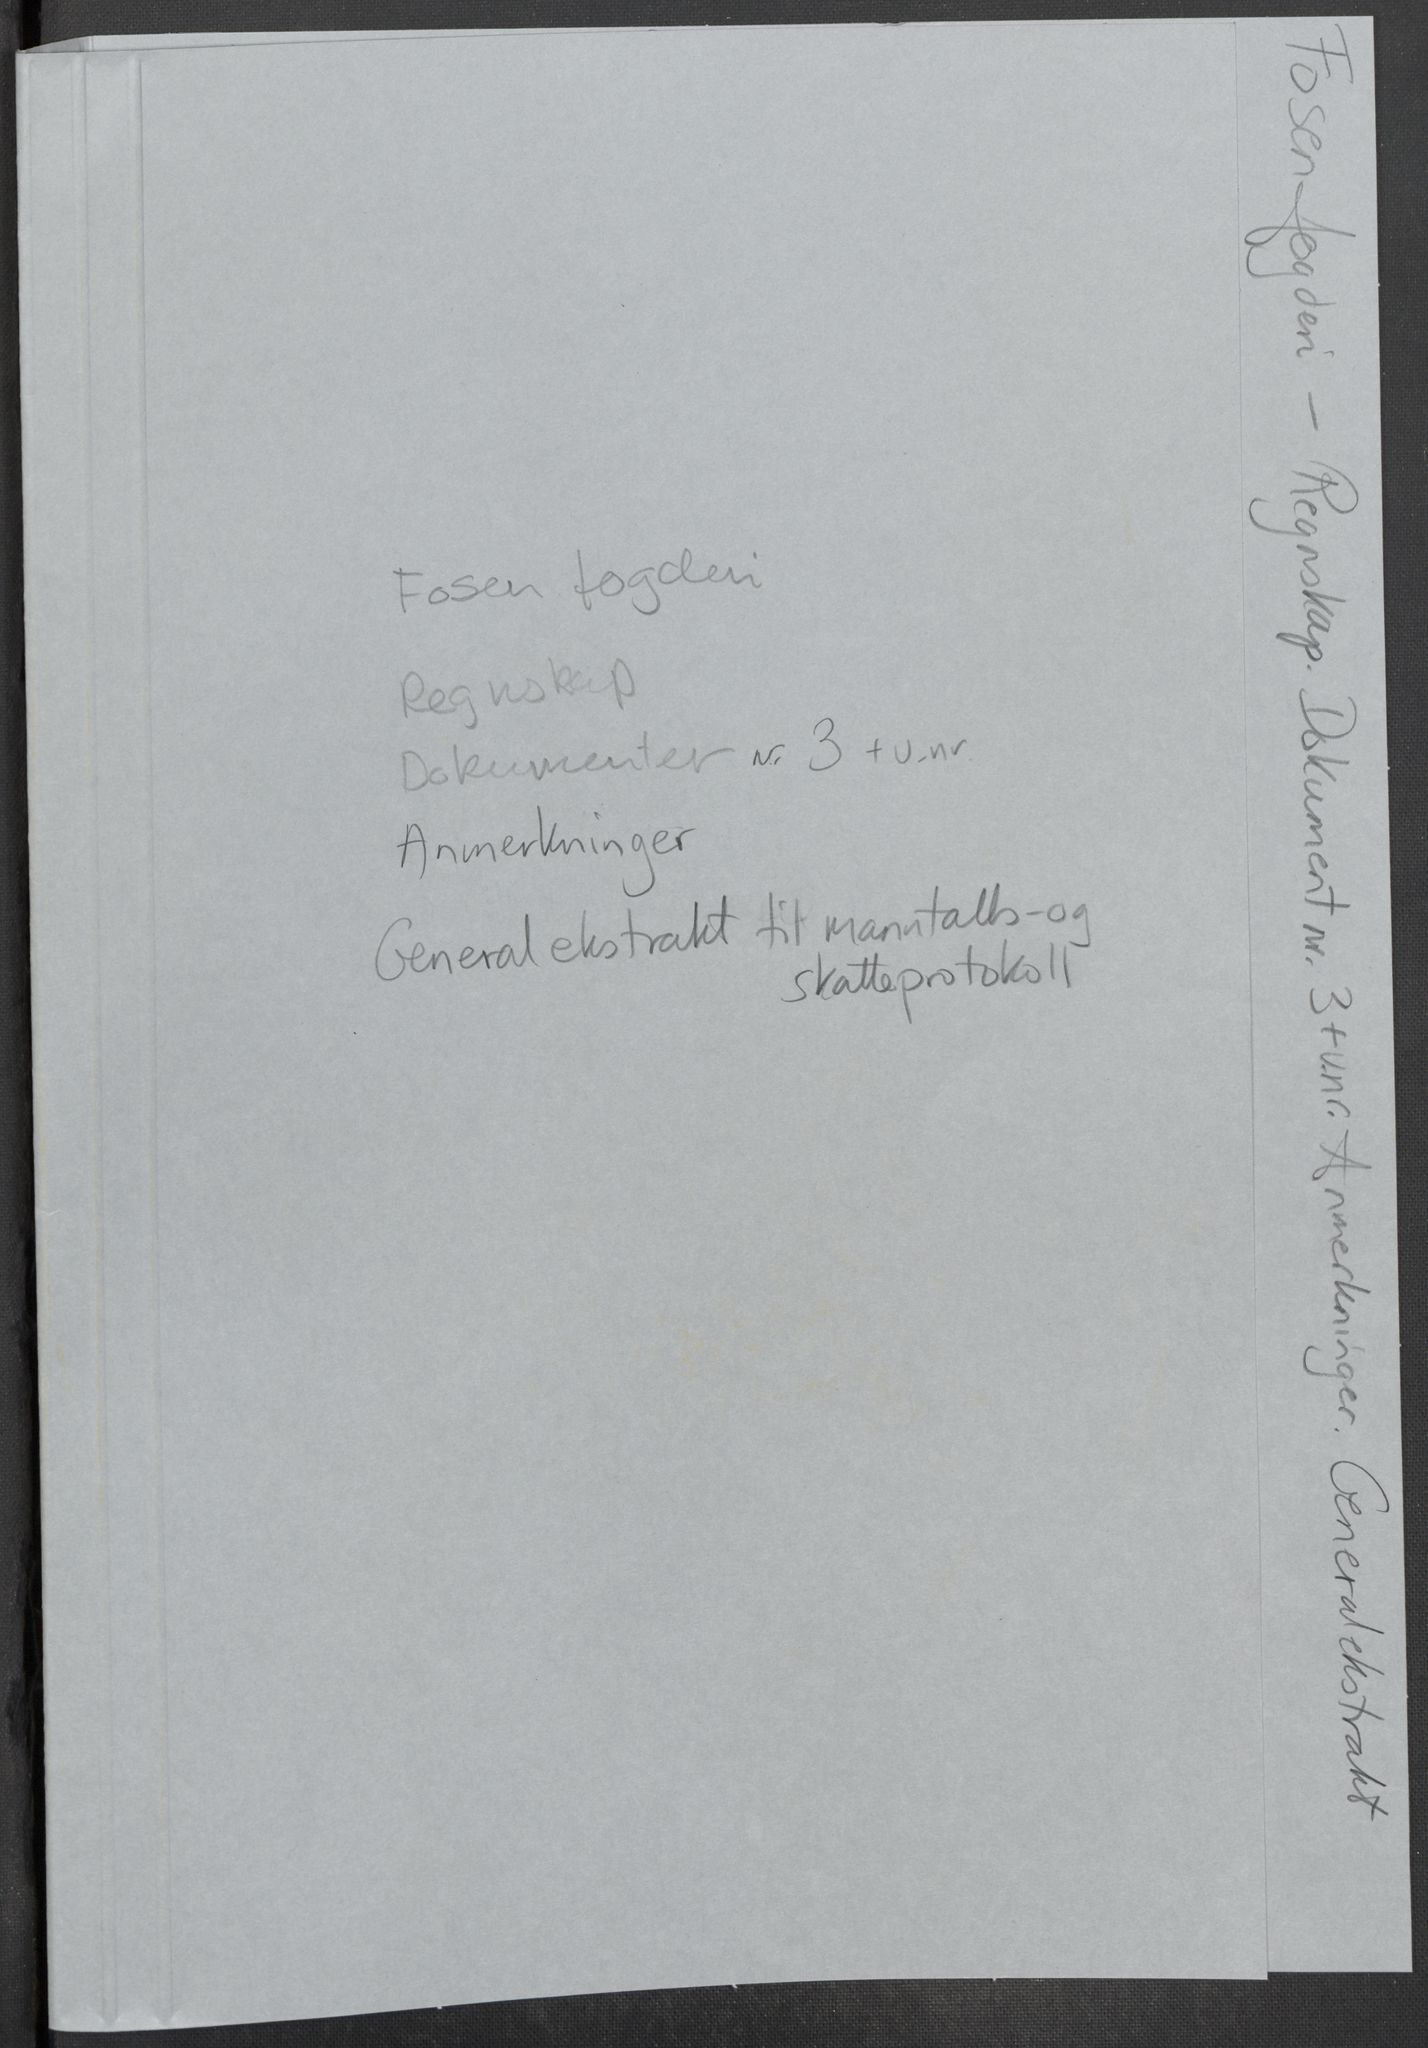 Fosen fogderi
Regnskap
Dokumenter nr. 3 + u.nr.
Anmerkninger
Generalekstrakt til manntalls- og
skatteprotokoll
Fosen fogderi - Regnskap. Dokument nr. 3 + u.nr. Anmerkninger. Generalekstrakt